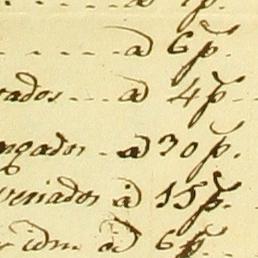 . . . . . . a 6 p.
ados . . . a 4 p.
ngados . a 30 p.
veriados à 15 p.
idm. à 6 p.